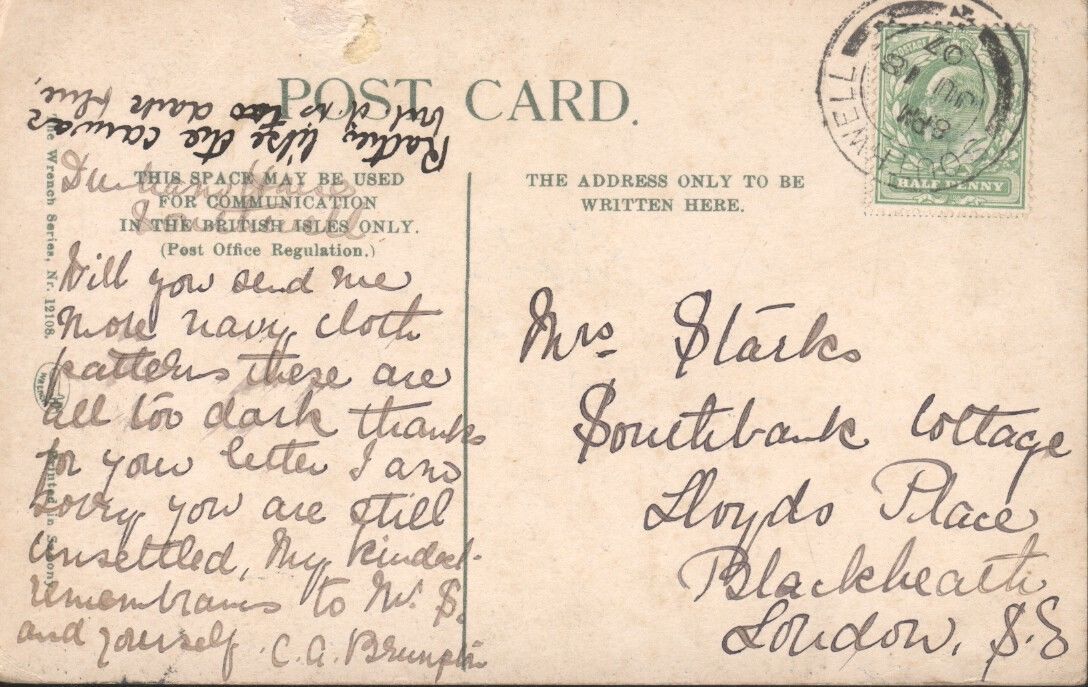 POST CARD.
Rather like the canvas
but it is too dark blue,
THIS SPACE MAY BE USED
FOR COMMUNICATION
IN THE BRITISH ISLES ONLY.
(Post Office Regulation.)
House
Southwell
Will you send me
more navy cloth
patterns these are
all too dark thanks
for your letter I am
sorry you are still
unsettled, My kindest
remembrans to Mr. S.
and yourself. C. A. Brumpton
The Wrench Series, Nr. 12108.
Printed in Saxony
THE ADDRESS ONLY TO BE
WRITTEN HERE.
SOUTHWELL
8 PM
JU 18
07
POSTAGE
HALF PENNY
Mrs Starks
Southbank Cottage
Lloyds Place
Blackheath
London, S.E